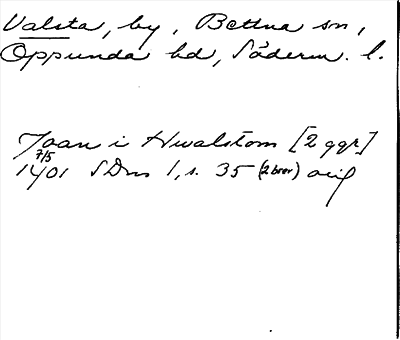 Valsta, by, Bettna sn,
Oppunda hd, Söderm. l.
Joan i Hwalstom [2 ggr]
7/5
1401 SDns 1, s. 35 (2 brev) orig